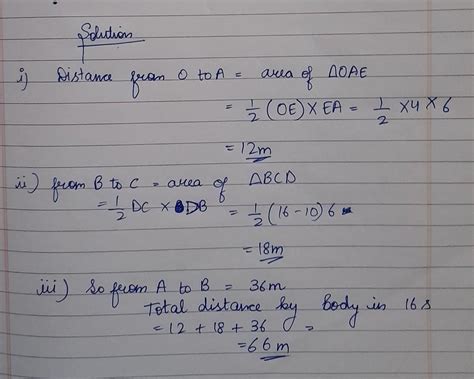 Solution
i) Distance from O to A = area of ΔOAE
= 1/2 (OE) × EA = 1/2 × 4 × 6
= 12m
ii) from B to C = area of ΔBCD
= 1/2 DC × DB = 1/2 (16-10) 6
= 18m
iii) So from A to B = 36m
Total distance by body in 16 s
= 12 + 18 + 36 =
= 66 m